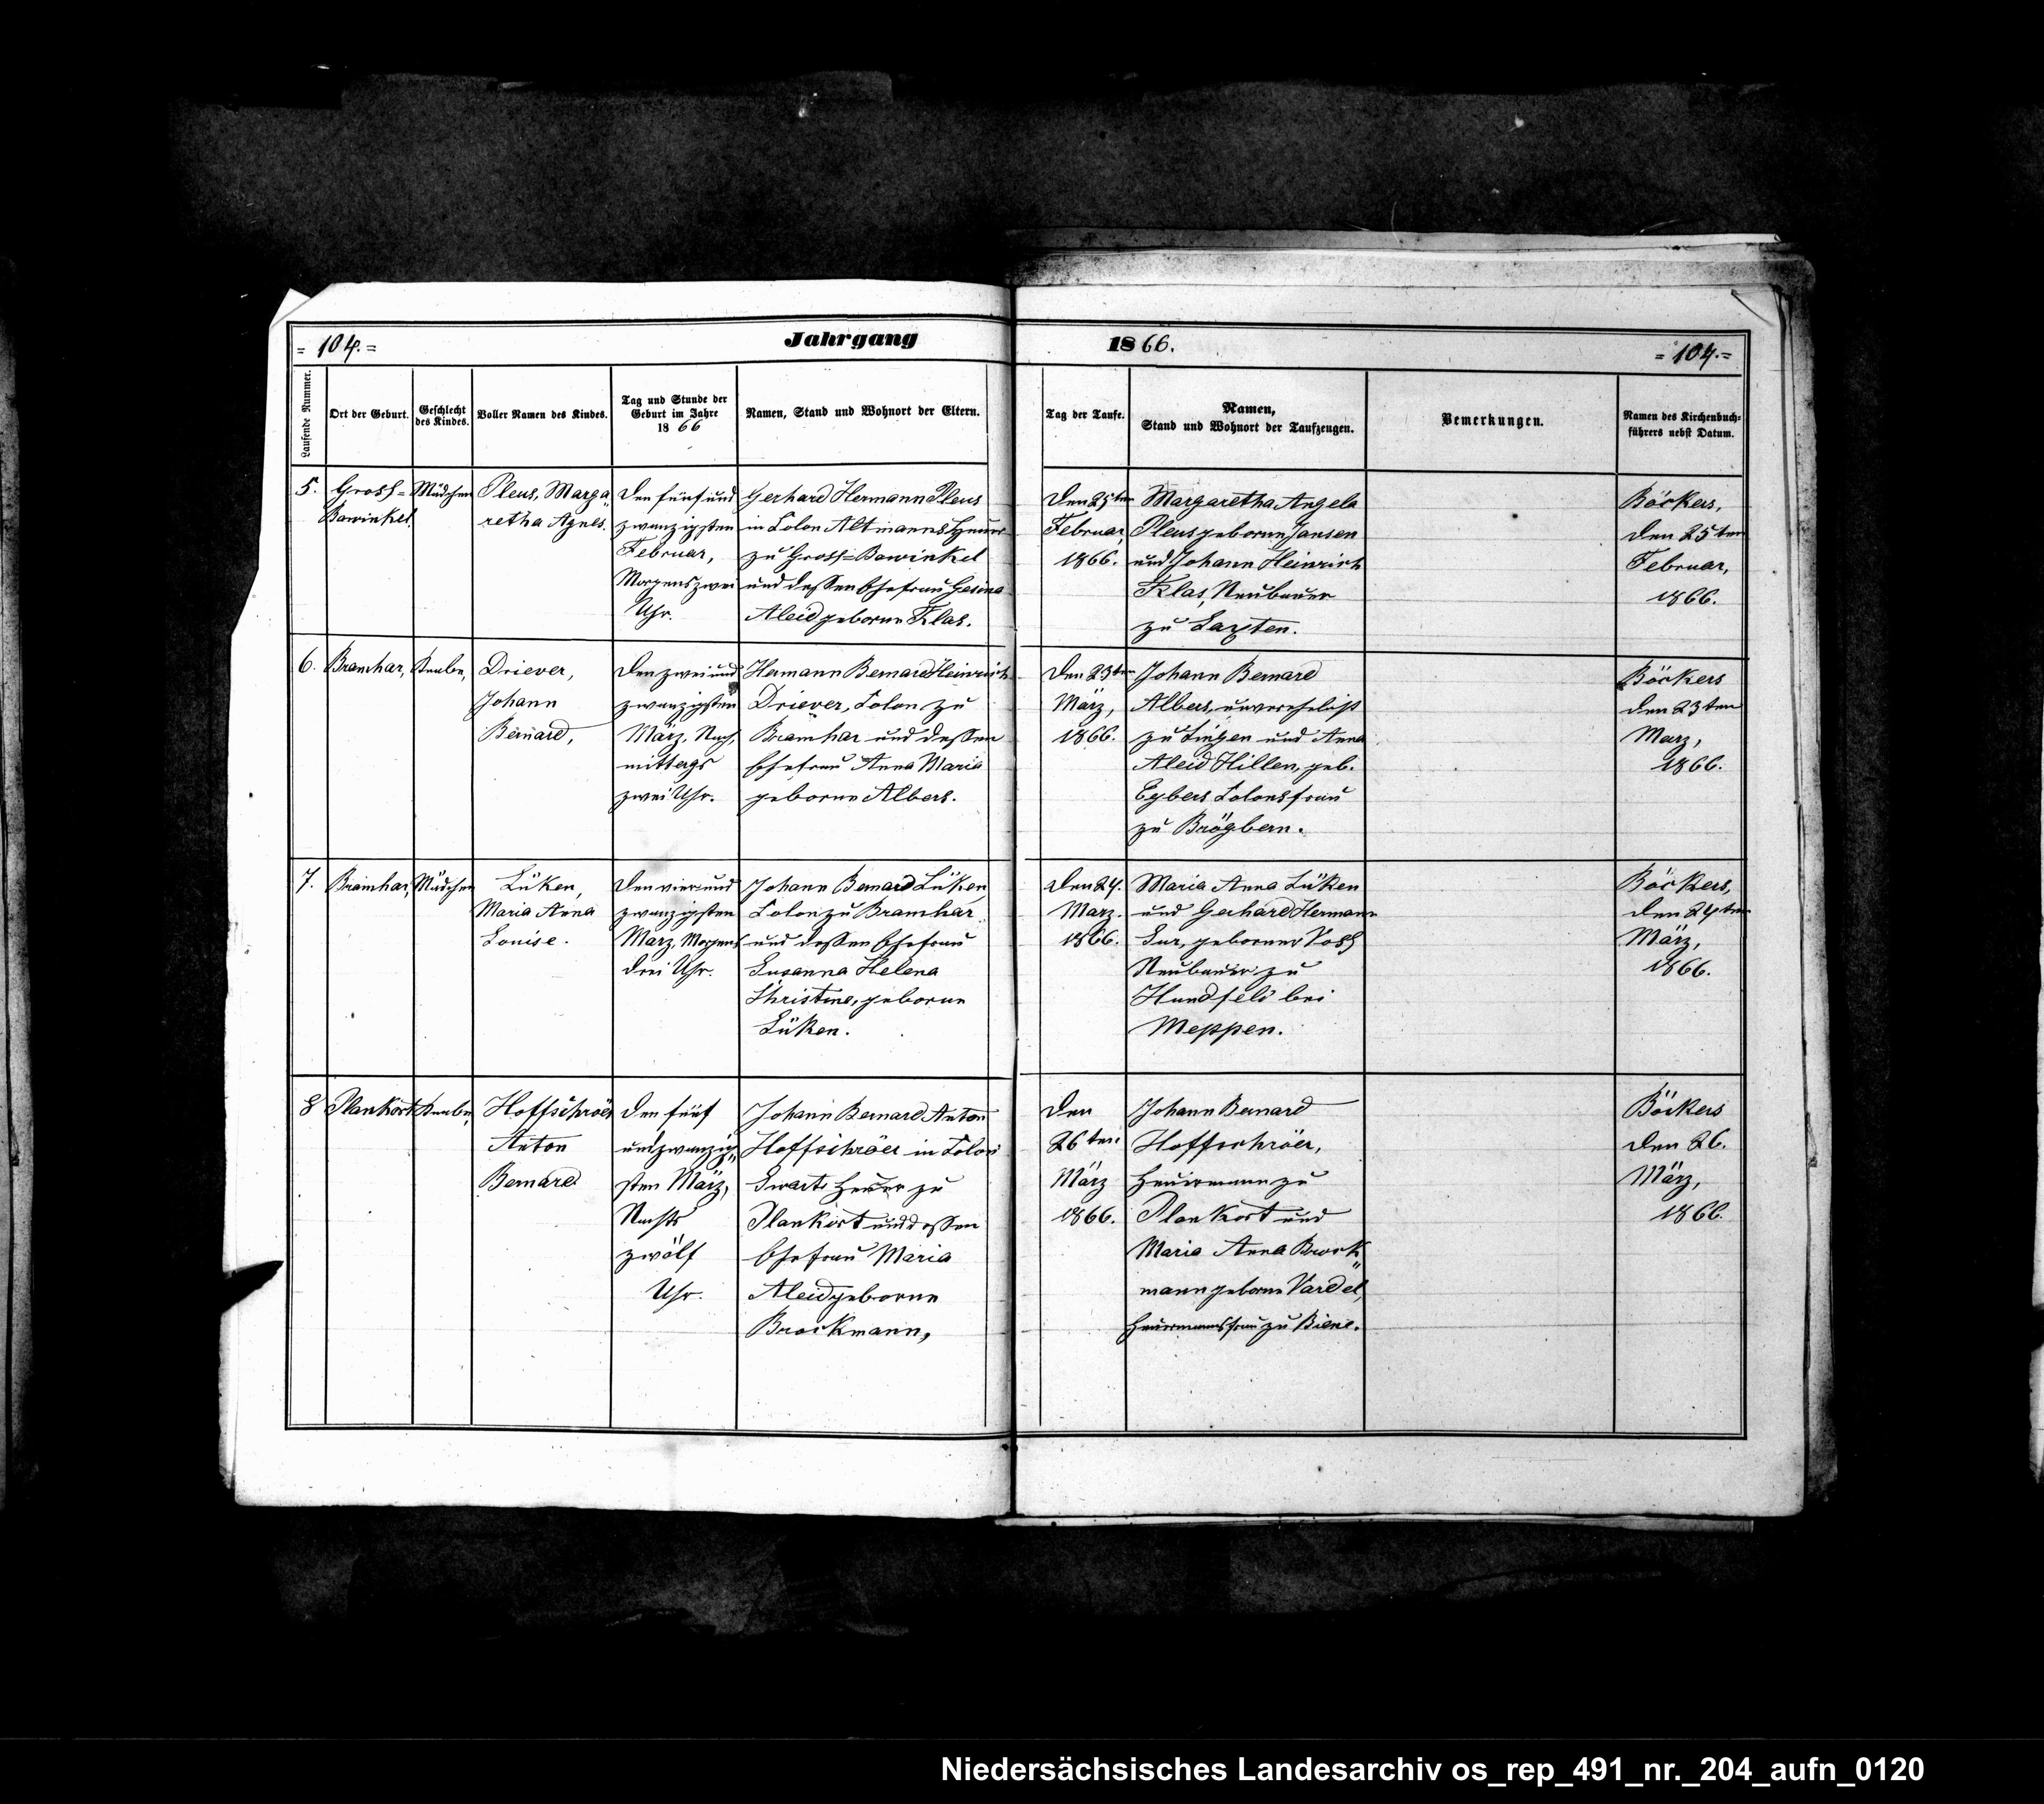 = 104. =
Jahrgang
1866.
= 104. =
Laufende Nummer.
Ort der Geburt.
Geschlecht
des Kindes.
Voller Namen des Kindes.
Tag und Stunde der
Geburt im Jahre
1866
Namen, Stand und Wohnort der Eltern.
Tag der Taufe.
Namen,
Stand und Wohnort der Taufzeugen.
Bemerkungen.
Namen des Kirchenbuch=
führers nebst Datum.
5.
Gross=
Bawinkel.
Mädchen
Pleus, Marga„
retha Agnes.
Den fünf und
zwanzigsten
Februar,
Morgens zwei
Uhr.
Gerhard Hermann Pleus
in Colon Altmanns Heuer
zu Gross=Bawinkel
und dessen Ehefrau Gesina
Aleid geborne Klas.
Den 25ten
Februar,
1866.
Margaretha Angela
Pleus geborne Jansen
und Johann Heinrich
Klas, Neubauer
zu Laxten.
Böckers,
den 25ten
Februar,
1866.
6.
Bramhar,
Knabe,
Driever,
Johann
Bernard,
Den zwei und
zwanzigsten
März, Nach,
mittags
zwei Uhr.
Hermann Bernard Heinrich
Driever, Colon zu
Bramhar und dessen
Ehefrau Anna Maria
geborne Albers.
Den 23ten
März,
1866.
Johann Bernard
Albers, unverehelicht
zu Lingen und Anna
Aleid Hillen, geb.
Egbers Colonsfrau
zu Brögbern.
Böckers
den 23ten
März,
1866.
7.
Bramhar,
Mädchen
Lüken,
Maria Anna
Louise.
Den vier und
zwanzigsten
März, Morgens
drei Uhr.
Johann Bernard Lüken
Colon zu Bramhar
und dessen Ehefrau
Susanna Helena
Christine, geborne
Lüken.
Den 24.
März.
1866.
Maria Anna Lüken
und Gerhard Hermann
Sur, geborner Voss
Neubauer zu
Hundfeld bei
Meppen.
Böckers,
den 24ten
März,
1866.
8
Plankort
Knabe,
Hoffschröer
Anton
Bernard
Den fünf
und zwanzig„
sten März,
Nachts
zwölf
Uhr.
Johann Bernard Anton
Hoffschröer in Colon
Swarts Heuer zu
Plankort und dessen
Ehefrau Maria
Aleid geborne
Brockmann,
Den
26ten
März
1866.
Johann Bernard
Hoffschröer,
Heuermann zu
Plankort und
Maria Anna Brock„
mann geborne Vardel,
Heuermannsfrau zu Biene.
Böckers
den 26.
März,
1866.
Niedersächsisches Landesarchiv os_rep_491_nr._204_aufn_0120